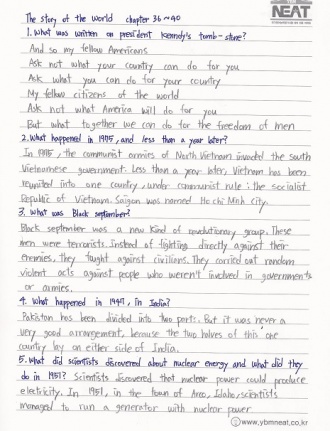 The story of the World chapter 36~40
NEAT
1. What was written on president Kennedy's tomb-stone?
And so my fellow Americans
Ask not what your country can do for you
Ask what you can do for your country
My fellow citizens of the world
Ask not what America will do for you
But what together we can do for the freedom of men
2. What happened in 1975, and less than a year later?
In 1975, the communist armies of North Vietnam invaded the south
Vietnamese government. Less than a year later, Vietnam has been
reunited into one country, under communist rule: the socialist
Republic of Vietnam. Saigon was named Ho chi Minh city.
3. What was Black september?
Black september was a new kind of revolutionary group. These
men were terrorists. Instead of fighting directly against their
enemies, they fought against civilians. They carried out random
violent acts against people who weren't involved in governments
or armies.
4. What happened in 1947, in India?
Pakistan has been divided into two parts. But it was never a
very good arrangement, because the two halves of this one
country lay on either side of India.
5. What did scientists discovered about nuclear energy and what did they
do in 1951? Scientists discovered that nuclear power could produce
electricity. In 1951, in the town of Arco, Idaho, scientists
managed to run a generator with nuclear power.
www.ybmneat.co.kr